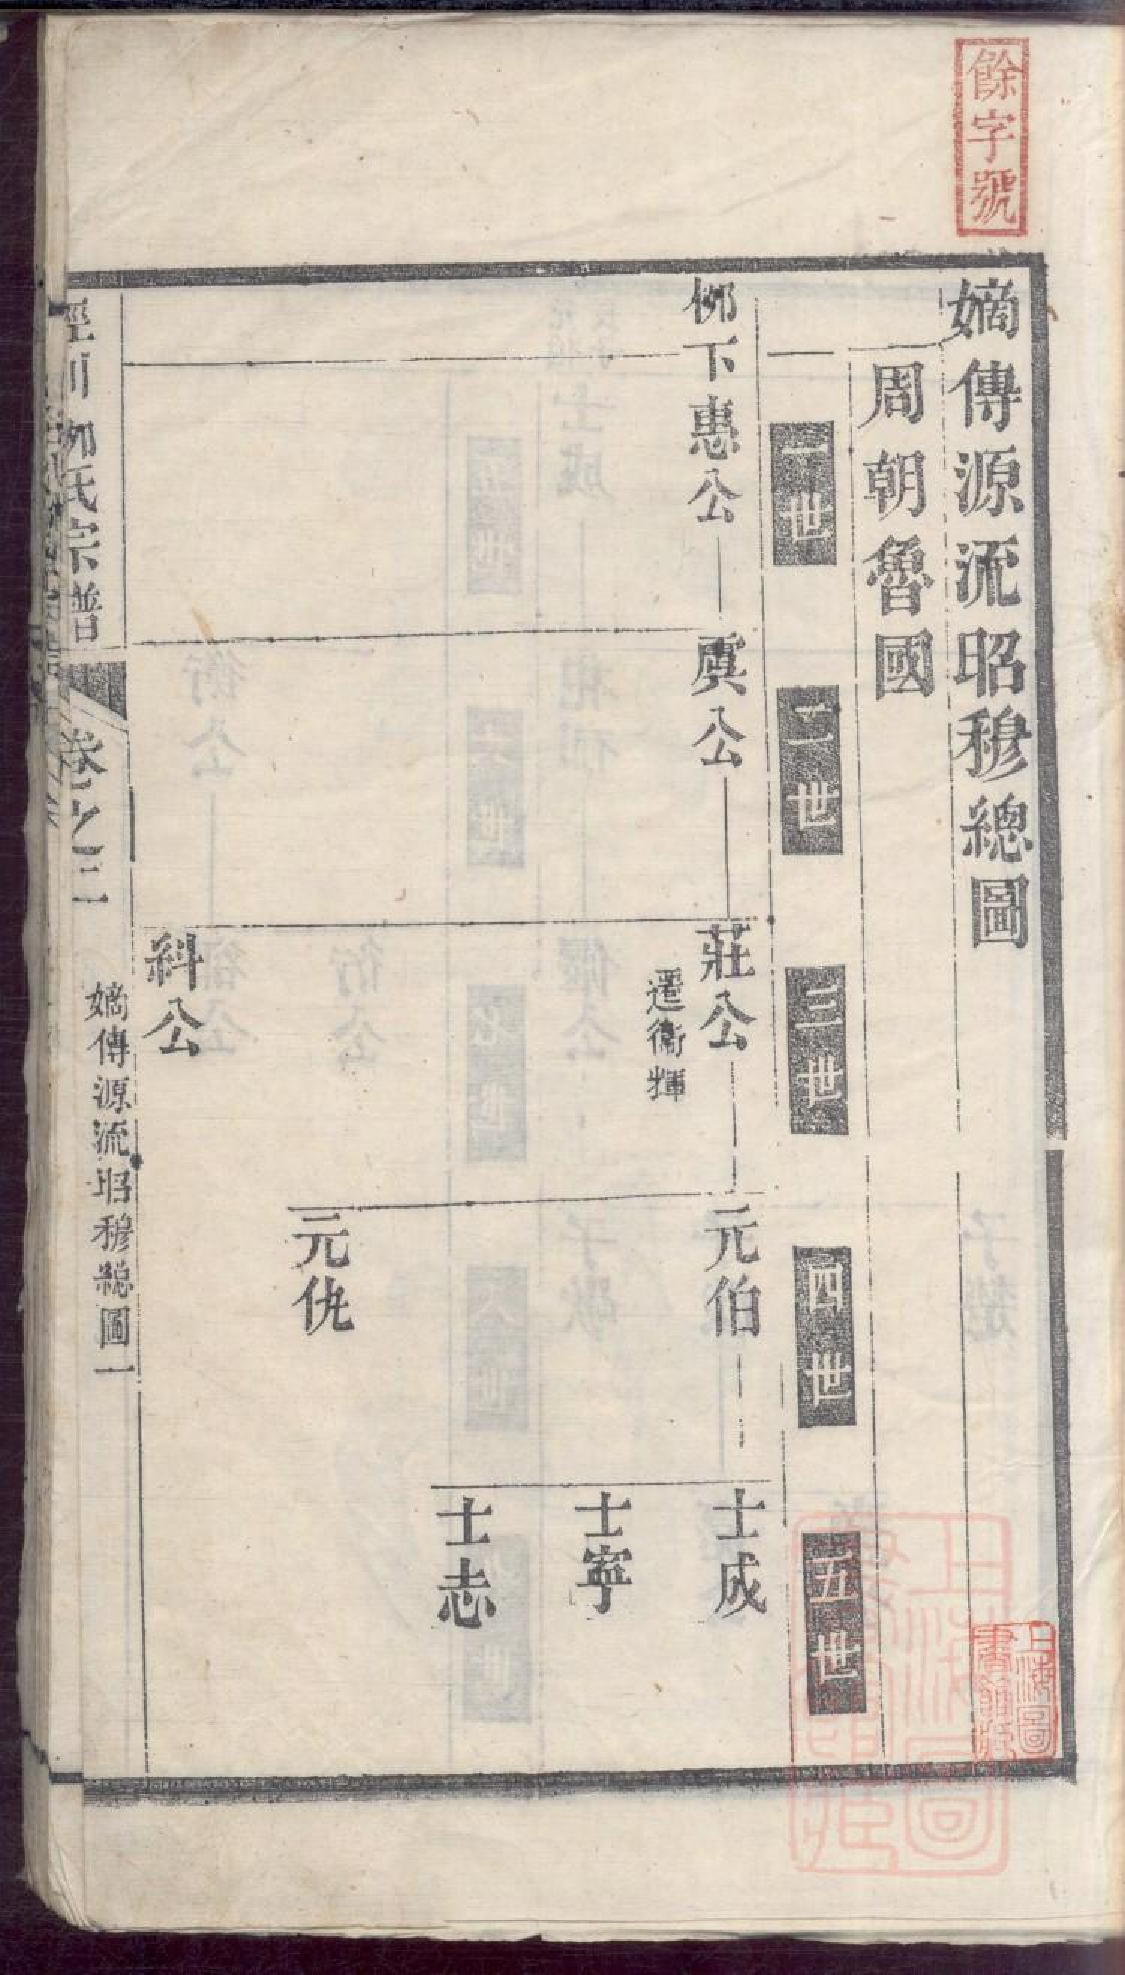 餘字號
嫡傳源流昭穆總圖
周朝魯國
一世
二世
三世
四世
五世
柳下惠公
虞公
莊公
遷衛輝
元伯
士成
士寧
士志
元仇
糾公
涇川柳氏宗譜
卷之二
嫡傳源流昭穆總圖一
上海圖
書館藏